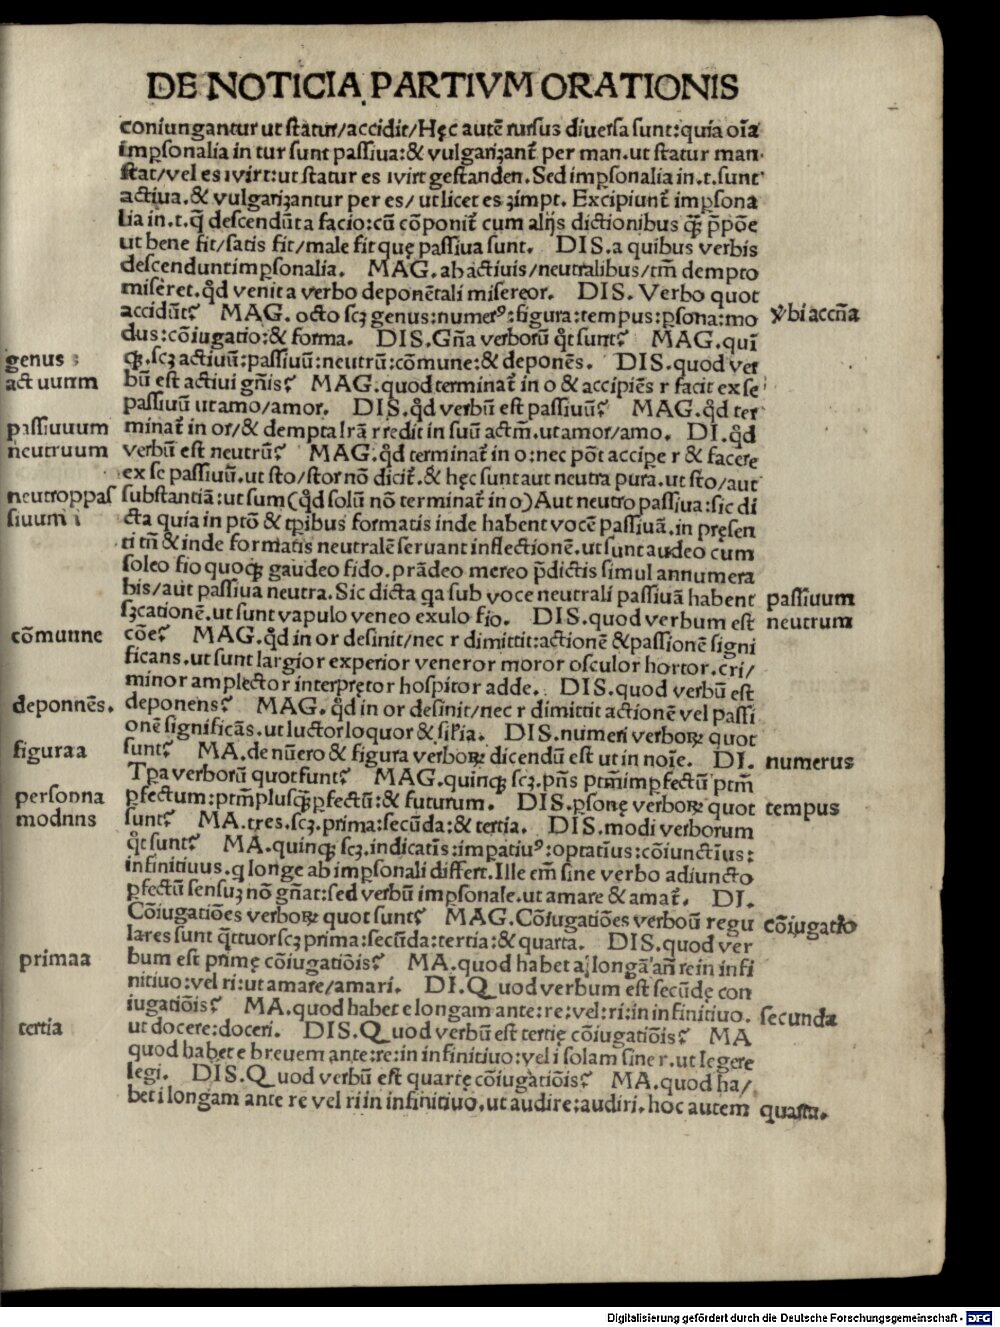 DE NOTICIA PARTIVM ORATIONIS
coniungantur ut statur/accidit/Hęc autē rursus diuersa sunt:quia oīa
impsonalia in tur sunt passiua:& vulgarizant̄ per man.ut statur man
stat/vel es wirt:ut statur es wirt gestanden. Sed impsonalia in.t.sunt
actiua.& vulgarizantur per es/ ut licet es zimpt. Excipiunt̄ impsona
lia in.t.q̄ descendūt a facio:cū cōponit̄ cum alijs dictionibus q̄ꝫ p̄pōe
ut bene fit/satis fit/male fit quę passiua sunt. DIS.a quibus verbis
descendunt impsonalia. MAG.ab actiuis/neutralibus/tm̄ dempto
miseret.qd̄ venit a verbo deponētali misereor. DIS. Verbo quot
accidūt? MAG. octo scꝫ genus:numerꝰ:figura:tempus:psona:mo
Vbi accn̄a
dus:cōiugatio:& forma. DIS.Gn̄a verborū qt̄ sunt? MAG.quī
genus :
qꝫ.scꝫ actiuū:passiuū:neutrū:cōmune:& deponēs. DIS.quod ver
act uunm
bū est actiui gn̄is? MAG.quod terminat̄ in o & accipiēs r facit ex se
passiuū ut amo/amor. DIS.qd̄ verbū est passiuū? MAG.qd̄ ter
passiuuum
minat̄ in or/& dempta lr̄a r redit in suū actm̄.ut amor/amo. DI.qd̄
neutruum
verbū est neutrū? MAG.qd̄ terminat̄ in o:nec pōt accipe r & facere
ex se passiuū.ut sto/stor nō dicit̄.& hęc sunt aut neutra pura.ut sto/aut
neutroppas
substantiā:ut sum(qd̄ solū nō terminat̄ in o)Aut neutro passiua:sic di
siuum i
cta quia in ptō & tpibus formatis inde habent vocē passiuā.in pręsen
ti tn̄ & inde formatis neutralē seruant inflectionē.ut sunt audeo cum
soleo fio quoqꝫ gaudeo fido.prādeo mereo p̄dictis simul annumera
bis/aut passiua neutra.Sic dicta qa sub voce neutrali passiuā habent
passiuum
sꝫcationē.ut sunt vapulo veneo exulo fio. DIS.quod verbum est
neutrum
cōmunne
cōe? MAG.qd̄ in or desinit/nec r dimittit:actionē & passionē signi
ficans.ut sunt largior experior veneror moror osculor hortor.cri/
minor amplector interpretor hospitor adde. DIS.quod verbū est
deponnēs.
deponens? MAG. qd̄ in or desinit/nec r dimittit actionē vel passi
onē significās.ut luctor loquor & sil̄ia. DIS.numeri verboꝝ quot
figuraa
sunt? MA.de nūero & figura verboꝝ dicendū est ut in noīe. DI.
numerus
Tpa verborū quot sunt? MAG.quinqꝫ scꝫ.pn̄s ptm̄impfectū ptm̄
personna
pfectum:ptm̄plusqꝫpfectū:& futurum. DIS.psonę verboꝝ quot
tempus
modnns
sunt? MA.tres.scꝫ.prima:secūda:& tertia. DIS.modi verborum
qt̄ sunt? MA.quinqꝫ scꝫ.indicatīs:impatiuꝰ:optatīus:cōiunctīus:
infinitiuus.q longe ab impsonali differt.Ille em̄ sine verbo adiuncto
pfectū sensuꝫ nō gn̄at:sed verbū impsonale.ut amare & amat̄. DI.
Cōiugatiōes verboꝝ quot sunt? MAG.Cōiugatiōes verboū regu
cōiugatio
lares sunt q̄ttuor scꝫ prima:secūda:tertia:& quarta. DIS.quod ver
primaa
bum est primę cōiugatiōis? MA.quod habet a longā an̄ re in infi
nitiuo:vel ri:ut amare/amari. DI.Quod verbum est secūdę con
iugatiōis? MA.quod habet e longam ante:re:vel:ri:in infinitiuo.
secunda
tertia
ut docere:doceri. DIS.Quod verbū est tertię cōiugatiōis? MA
quod habet e breuem ante:re:in infinitiuo:vel i solam sine r.ut legere
legi. DIS.Quod verbū est quartę cōiugatiōis? MA.quod ha/
bet i longam ante re vel ri in infinitiuo.ut audire:audiri.hoc autem
quarta.
Digitalisierung gefördert durch die Deutsche Forschungsgemeinschaft - DFG